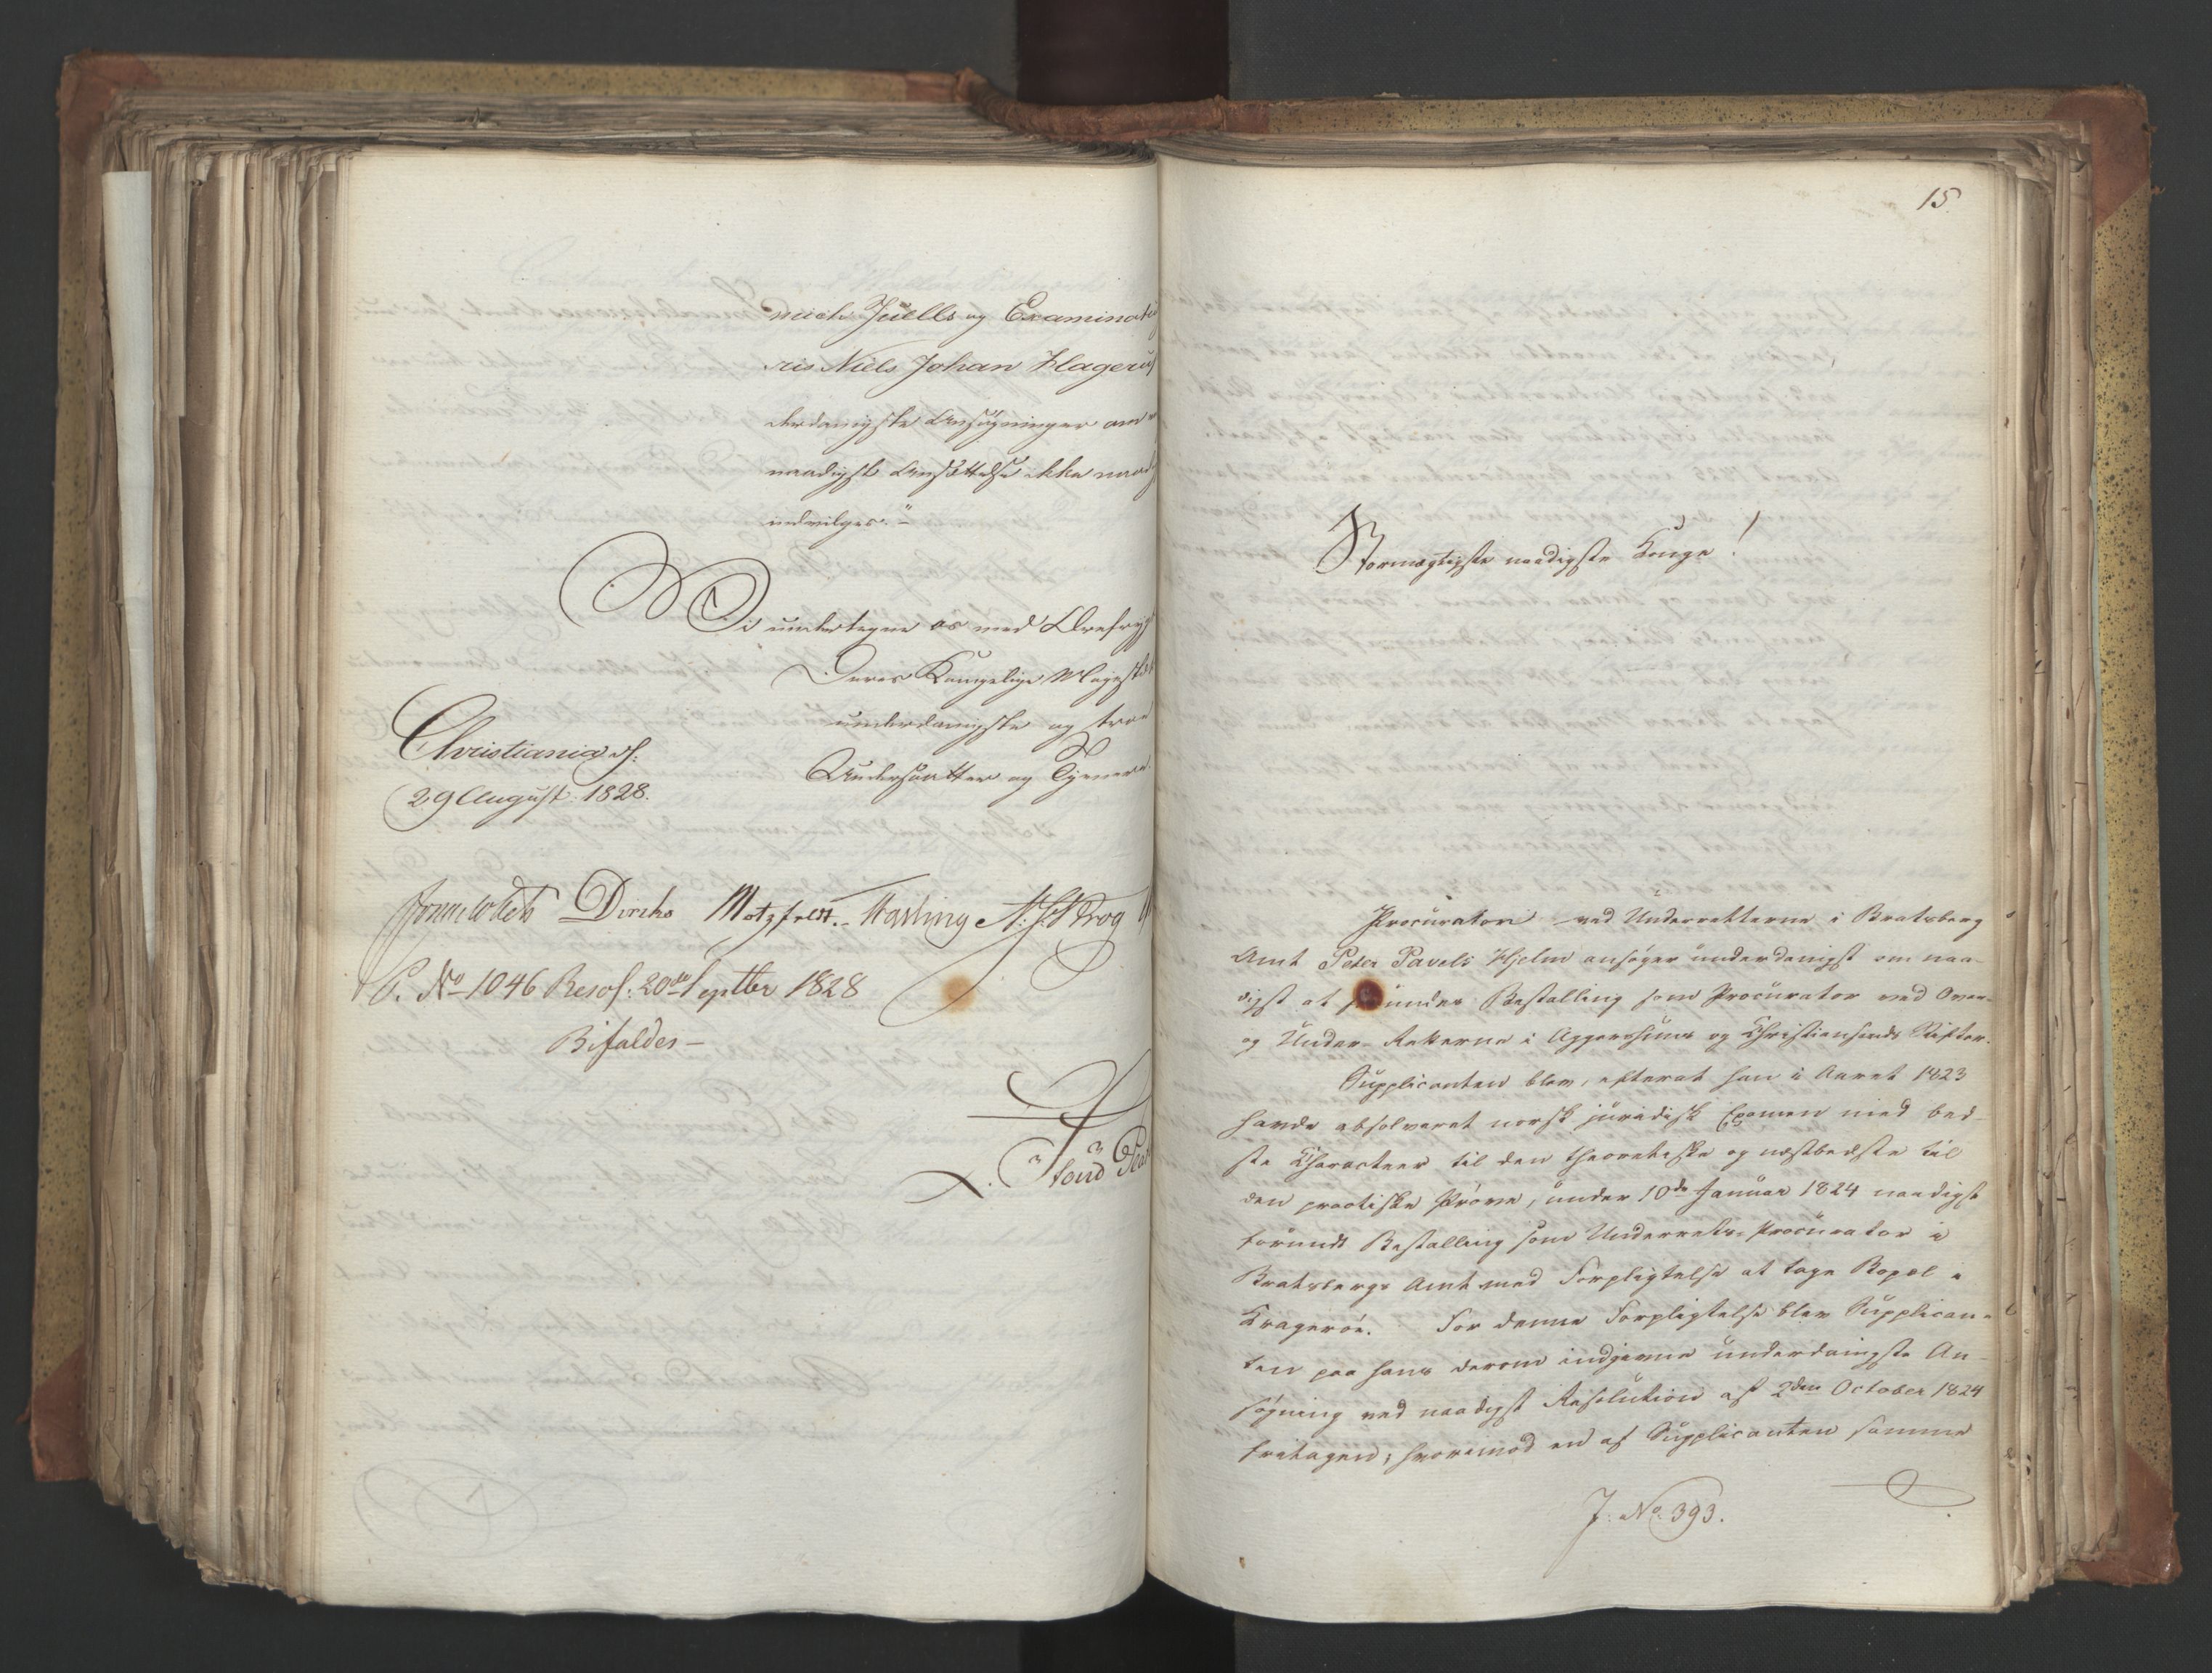 michs Juells og Examinatü
ris Niels Johan Hagerus
derdanigste Ansögninger om
naadigst Ansættelse ikke naad
indvilges."
Vi undertegne os med Ærefrygt
Deres Kongelige Majestæt
underdanigste og troe
Undersaatter og Tjenere.
Christiania d.
29 August 1828.
Diricks Motzfeldt. Krog
S. No 1046 Resol: 20de Septbr 1828
Bifaldes –
15.
Stormægtigste naadigste Konge!
Procurator ved Underretterne i Bratsberg
Amt Peter Pavels Hjelm ansøger underdanigst om naa-
digst at undes Bestalling som Procurator ved Over-
og Under-Retterne i Aggershuus og Christiansands Stifter.
Supplicanten blev, efterat han i Aaret 1823
havde absolveret norsk juridisk Examen med bed-
ste Characteer til den theoretiske og næstbedste til
den practiske Prøve, under 10de Januar 1824 naadigst
forundt Bestalling som Underrets-Procurator i
Bratsbergs Amt med Forpligtelse at tage Bopæl i
Kragerøe. For denne Forpligtelse blev Supplican-
ten paa hans derom indgivne underdanigste An-
søgning ved naadigst Resolution af 2den October 1824
fritagen; hvorimod en af Supplicanten samme
J. No 393.